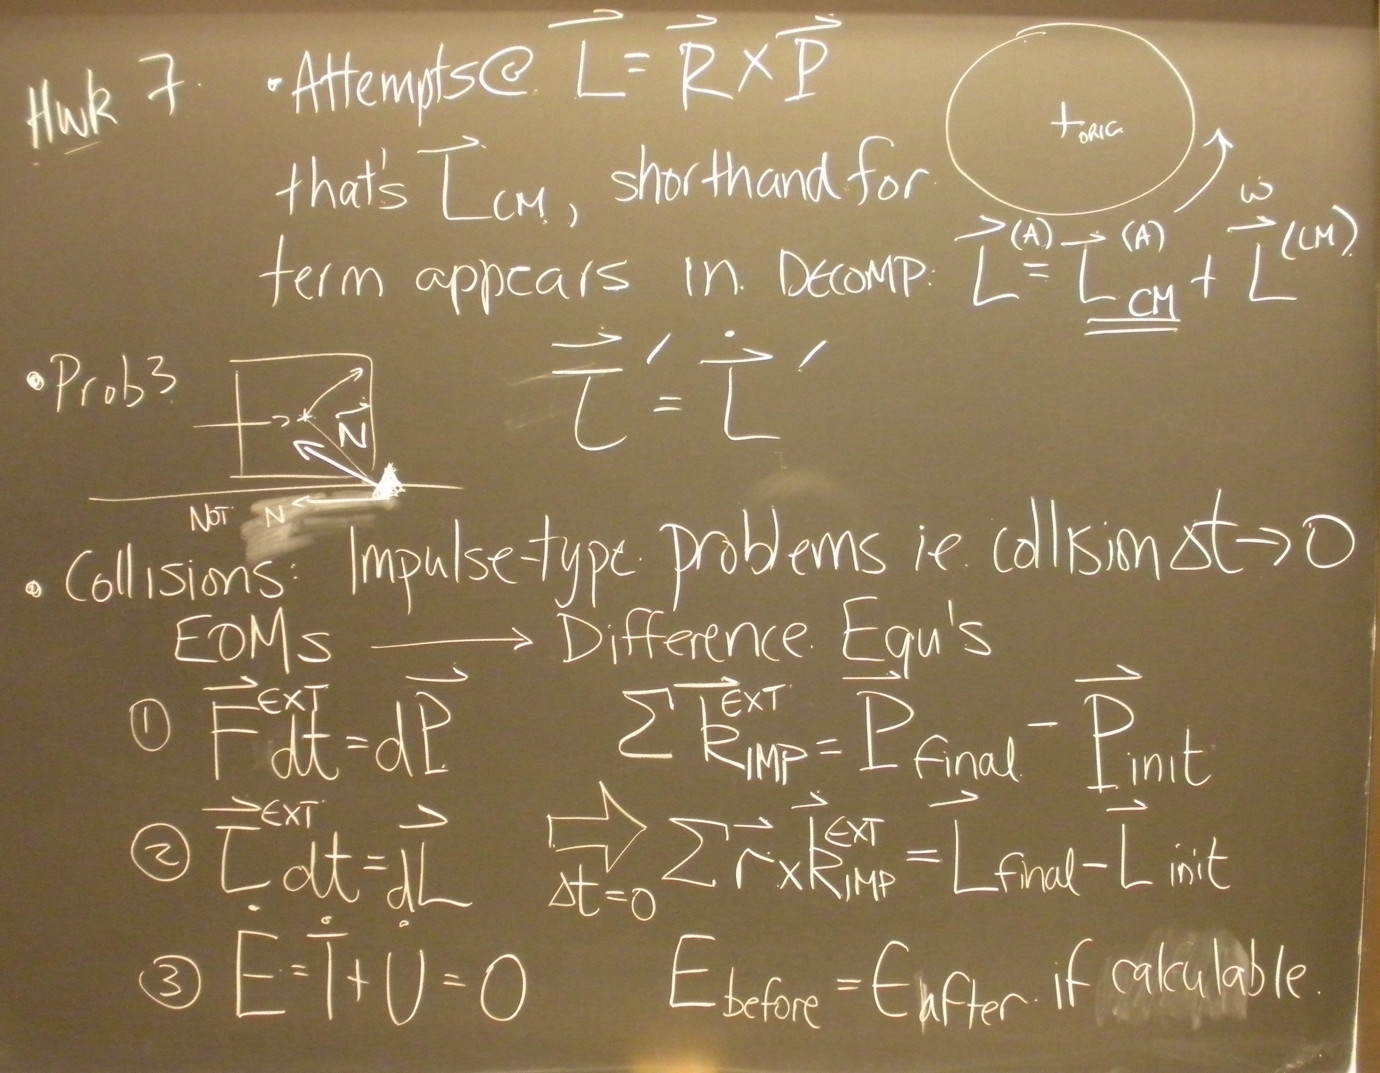 Hwk 7. • Attempts @ L⃗ = R⃗ × P⃗
+ORIG.
that's L⃗CM, shorthand for
ω
term appears in DECOMP: L⃗(A) = L⃗CM(A) + L⃗(CM)
• Prob 3
τ⃗' = L⃗̇'
N⃗
NOT N
• Collisions: Impulse-type problems ie. collision Δt → 0
EOMs → Difference Equ's
① F⃗EXT dt = dP⃗ Σ k⃗IMP EXT = P⃗final - P⃗init
② τ⃗EXT dt = dL⃗ ⇒ Δt=0 Σ r⃗ × k⃗IMP EXT = L⃗final - L⃗init
③ Ė = Ṫ + U̇ = 0 Ebefore = Eafter if calculable.